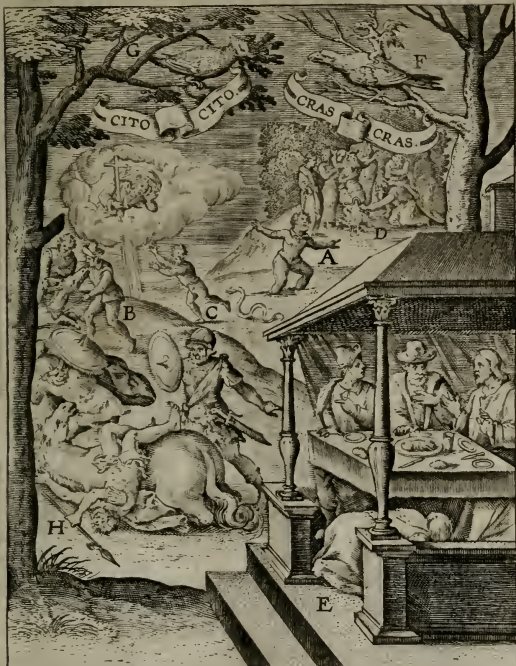 G
F
CITO CITO.
CRAS CRAS.
D
A
B
C
H
E